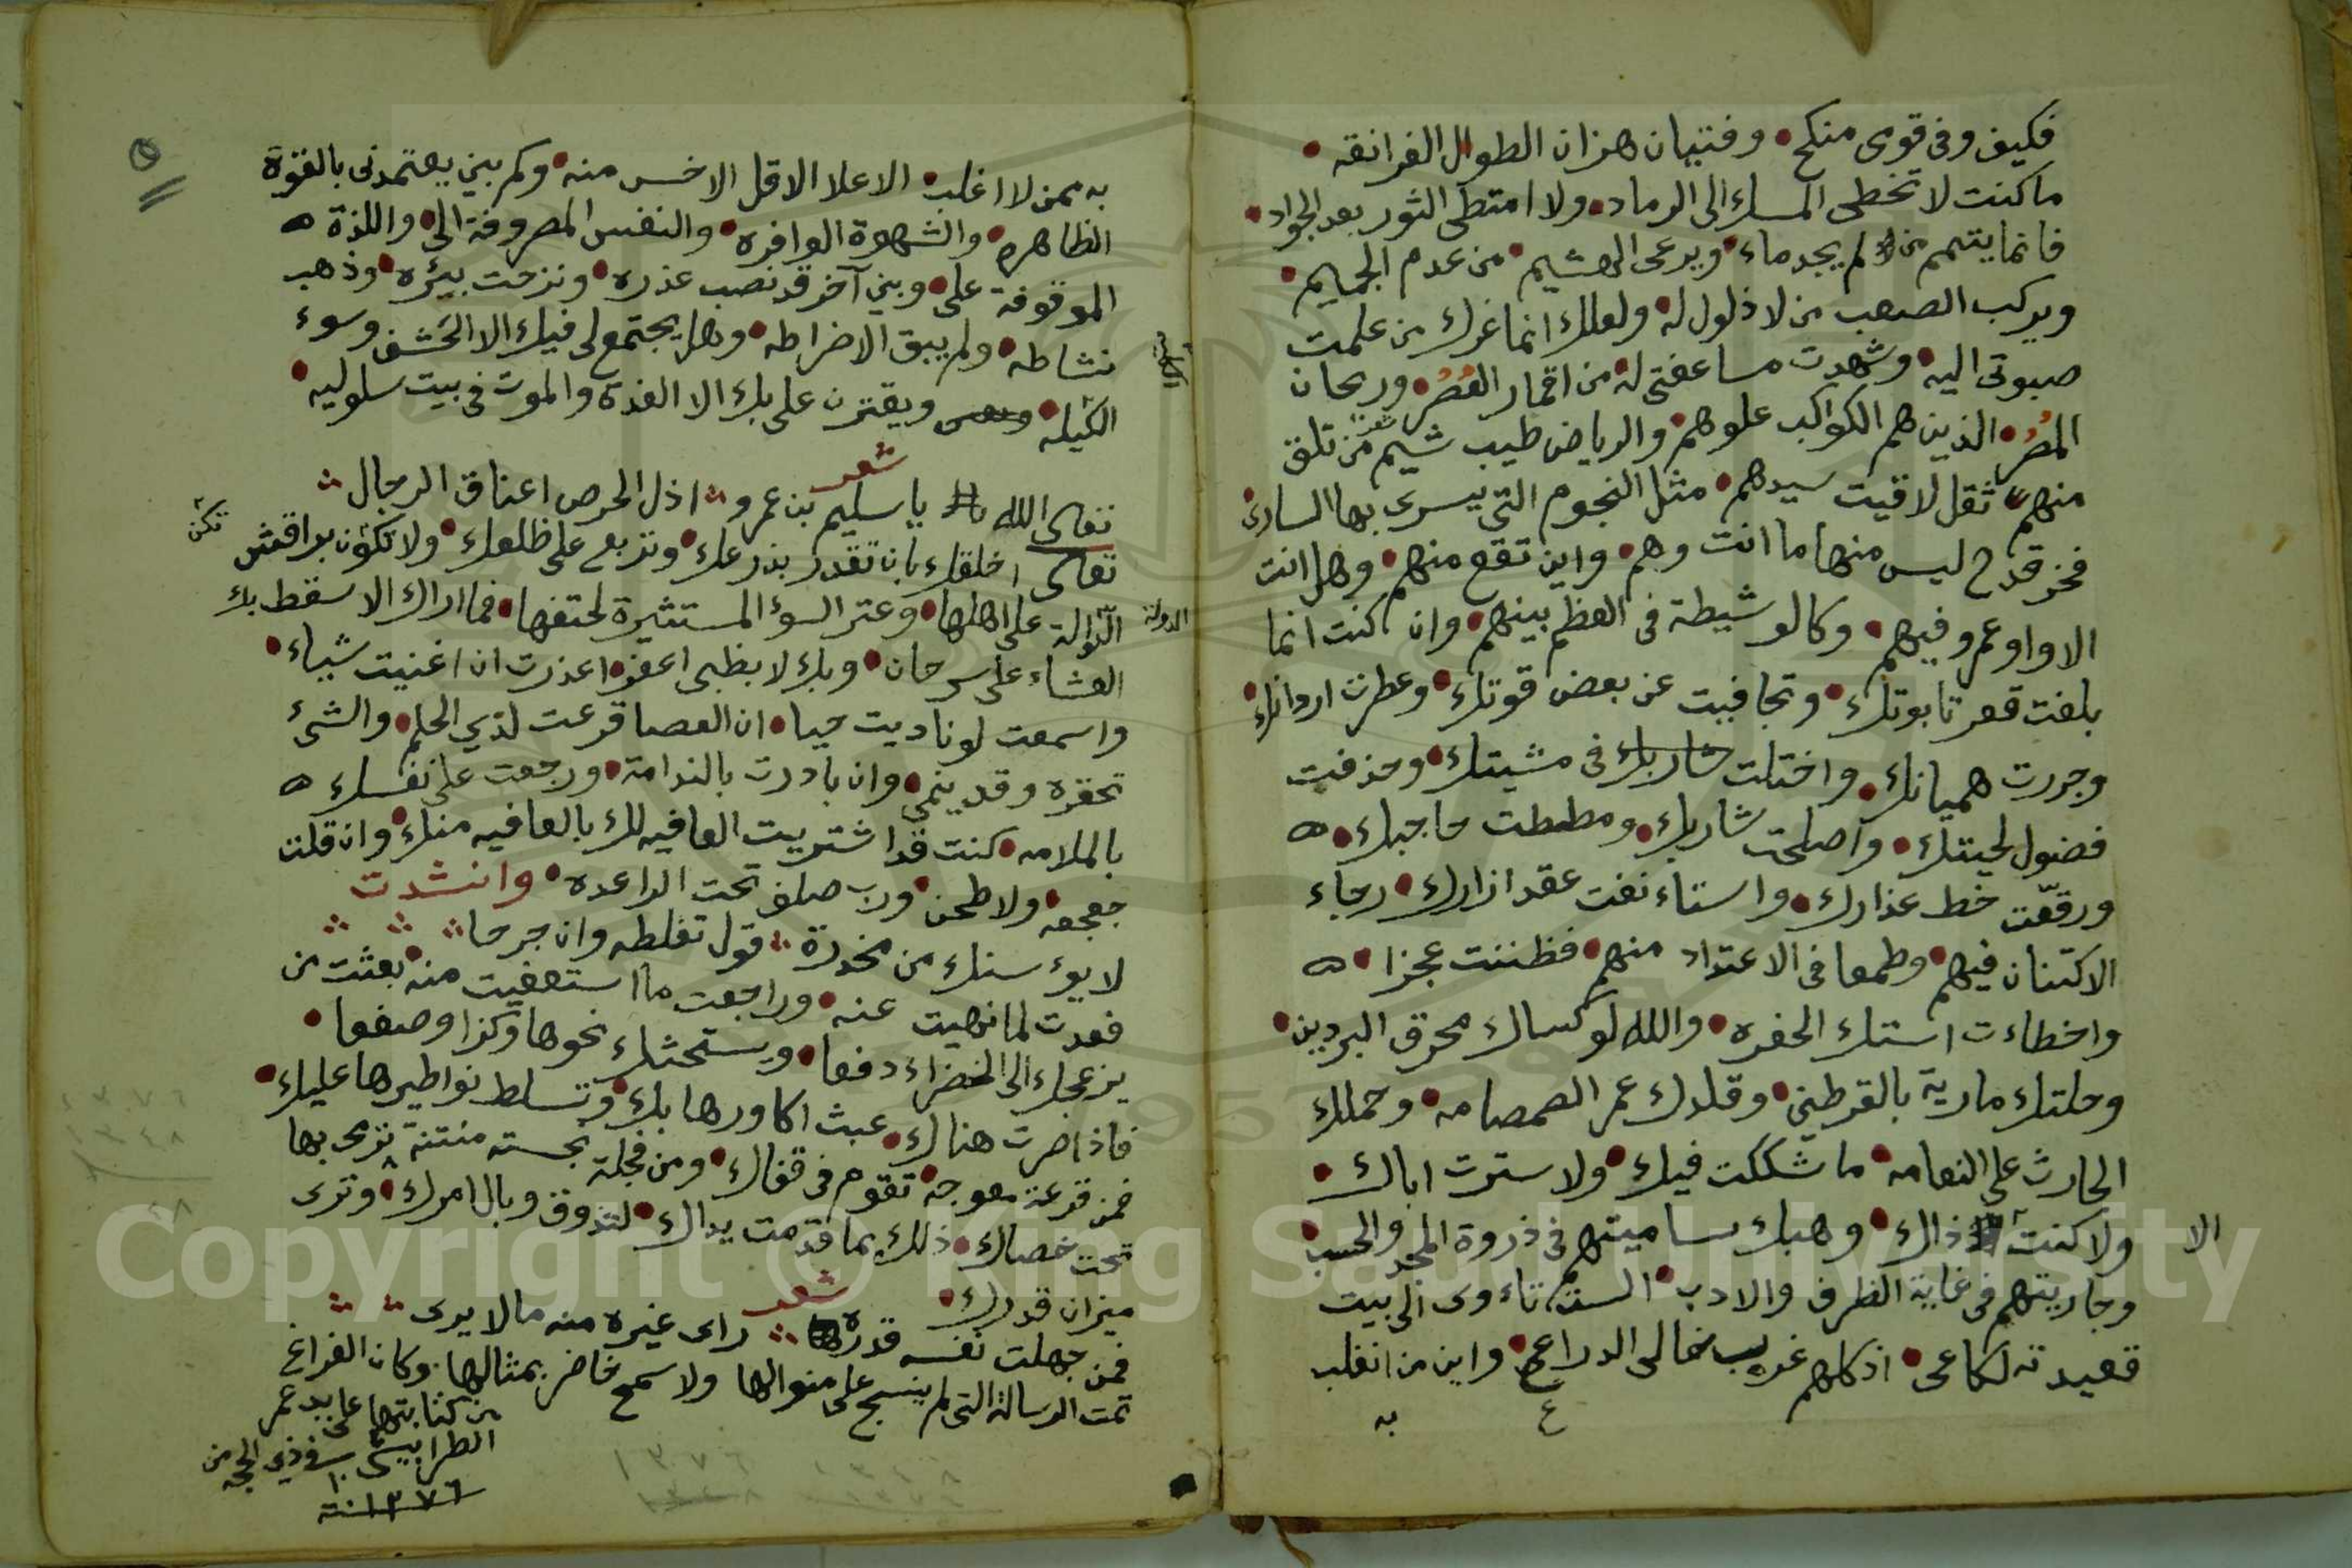 فكيف وفى قومى منكح • وفتيان هزان الطوال الغرانقه •
ما كنت لا تخطى المسك الى الرماد • ولا امتطى الثور بعد الجواد •
فانما يتيمم من لم يجد ماء • ويرعى الهشيم • من عدم الجميم •
ويركب الصعب من لا ذلول له • ولعلك انما غرك من علمت
صبوتى اليه • وشهدت مساعفتى له • من اقمار العصر • وريحان
المصر • الذين هم الكواكب علو همم • والرياض طيب شيم من تلق
منهم تقل لاقيت سيدهم • مثل النجوم التى يسرى بها السارى
فحن قدح ليس منها ما انت وهم • واين تقع منهم • وهل انت
الا واو عمرو فيهم • وكالوشيظة فى العظم بينهم • وان كنت انما
بلغت قعر تابوتك • وتجافيت عن بعض قوتك • وعطرت اردانك •
وجررت هميانك • واختلت فى مشيتك • وحذفت
فضول لحيتك • واصلحت شاربك • ومططت حاجبك • ه
ورقّعت خط عذارك • واستاءنفت عقد ازارك • رجاء
الاكتنان فيهم • وطمعا فى الاعتداد منهم • فظننت عجزا • ه
واخطاءت استك الحفره • والله لو كساك محرق البردين •
وحلتك مارية بالقرطين • وقلدك عمر الصمصامه • وحملك
الحارث على النعامه • ما شككت فيك • ولا سترت اباك •
ولا كنت الا ذاك • وهبك ساميتهم فى ذروة المجد والحسب •
وجاريتهم فى غاية الظرف والادب • الست تاءوى الى بيت
قعيدته لكاعى • اذ كلهم عزب خالى الدراع • واين من انفلب
به
به ممن لا اغلب • الا على الاقل الاخس منه • وكم بين يعتمدنى بالقوة
الظاهره • والشهوة الوافره • والنفس المصروفة الى • واللذة ه
الموقوفة على • وبين آخر قد نصب غدره • ونزحت بيئره • وذهب
نشاطه • ولم يبق الا ضراطه • وهل يجتمع لى فيك الا الحشف وسوء
الكيله • ويقترن على بك الا الغدة والموت فى بيت سلوليه •
شعر
تعالى الله يا سليم بن عمرو ؞ اذل الحرص اعناق الرجال ؞
اخلقك بان تقدر بذرعك • وتربع على ظلعك • ولا تكون براقش
الدولة على اهلها • وعنز السوء المستثيرة لحتفها • فما اراك الا سقط بك
العشاء على سرحان • وبك لا بظبى اعفر • اعذرت ان اغنيت شياء •
واسمعت لو ناديت حيا • ان العصا قرعت لذي الحلم • والشئ
تحقره وقد ينمى • وان بادرت بالندامة • ورجعت على نفسك ه
بالملامه • كنت قد اشتريت العافيه لك بالعافيه منك • وان قلت
جعجعه ولا طحن • ورب صلف تحت الراعده • وانشدت
لا يوءسنك من مخدرة ؞ قول تغلطه وان جرحا ؞ ؞ ؞
فعدت لما نهيت عنه • وراجعت ما استعفيت منه • بعثت من
يزعجك الى الخضراء دفعا • ويستحثك نحوها وكزا وصفعا •
فاذا صرت هناك • عبث اكاورها بك • وتسلط نواطيرها عليك •
فمن قرعة معوجه تقوم فى قفاك • ومن فجلة منتنة ترمى بها
تحت خصاك • ذلك بما قدمت يداك • لتذوق وبال امرك • وترى
ميزان قدرك •
شعر
فمن جهلت نفسه قدره ؞ راى غيره منه ما لا يرى ؞ ؞
تمت الرسالة التى لم ينسج على منوالها ولا سمح خاضر بمثالها • وكان الفراغ
من كتابتها على يد عمر
فى ذي الحجه من
سنة ١٣٧٦
Copyright © King Saud University